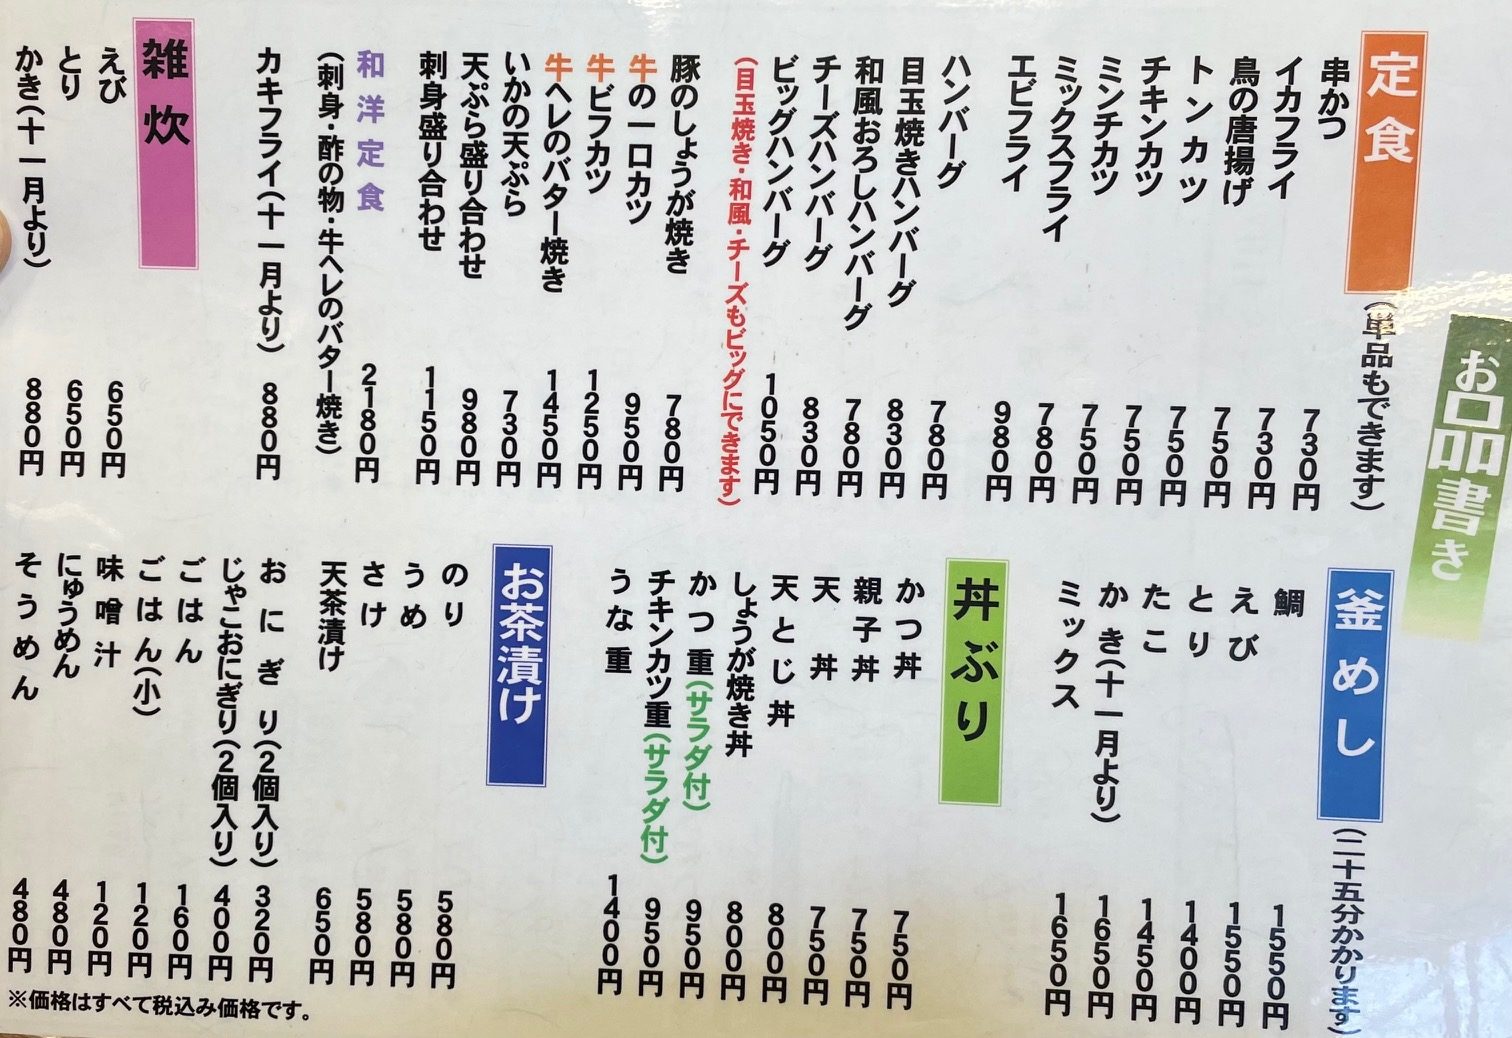 お品書き
定食
(単品もできます)
串かつ 730円
イカフライ 730円
鳥の唐揚げ 750円
トンカツ 750円
チキンカツ 750円
ミンチカツ 750円
ミックスフライ 780円
エビフライ 980円
ハンバーグ 780円
目玉焼きハンバーグ 830円
和風おろしハンバーグ 780円
チーズハンバーグ 830円
ビッグハンバーグ 1050円
(目玉焼き・和風・チーズもビッグにできます)
豚のしょうが焼き 780円
牛の一口カツ 950円
牛ビフカツ 1250円
牛ヘレのバター焼き 1450円
いかの天ぷら 730円
天ぷら盛り合わせ 980円
刺身盛り合わせ 1150円
和洋定食 2180円
(刺身・酢の物・牛ヘレのバター焼き)
カキフライ(十一月より) 880円
雑炊
えび 650円
とり 650円
かき(十一月より) 880円
釜めし
(二十五分かかります)
鯛 1550円
えび 1550円
とり 1400円
たこ 1450円
かき(十一月より) 1650円
ミックス 1650円
丼ぶり
かつ丼 750円
親子丼 750円
天丼 750円
天とじ丼 800円
しょうが焼き丼 800円
かつ重(サラダ付) 950円
チキンカツ重(サラダ付) 950円
うな重 1400円
お茶漬け
のり 580円
うめ 580円
さけ 580円
天茶漬け 650円
おにぎり(2個入り) 320円
じゃこおにぎり(2個入り) 400円
ごはん 160円
ごはん(小) 120円
味噌汁 120円
にゅうめん 480円
そうめん 480円
※価格はすべて税込み価格です。